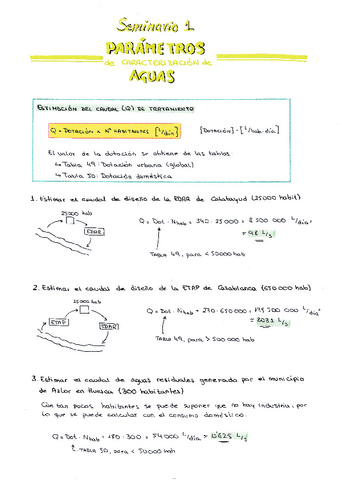 Seminario 1
PARÁMETROS
de CARACTERIZACIÓN de
AGUAS
ESTIMACIÓN DEL CAUDAL (Q) DE TRATAMIENTO
Q = DOTACIÓN x Nº HABITANTES [L/día]
[DOTACIÓN] = [L/hab·día]
El valor de la dotación se obtiene de las tablas:
↳ Tabla 49: Dotación urbana (global)
↳ Tabla 50: Dotación doméstica
1. Estimar el caudal de diseño de la EDAR de Calatayud (25000 habit)
25000 hab
EDAR
Q = Dot · Nhab = 340 · 25000 = 8 500 000 L/día =
= 98 L/s
TABLA 49, para < 50000 hab
2. Estimar el caudal de diseño de la ETAP de Casablanca (650 000 hab)
ETAP
EDAR
Q = Dot · Nhab = 270 · 650 000 = 175 500 000 L/día =
= 2031 L/s
TABLA 49, para > 500 000 hab
3. Estimar el caudal de aguas residuales generado por el municipio
de Azlor en Huesca (300 habitantes)
Con tan pocos habitantes se puede suponer que no hay industria, por
lo que se puede calcular con el consumo doméstico.
Q = Dot · Nhab = 180 · 300 = 54 000 L/día = 0'625 L/s
TABLA 50, para < 50 000 hab